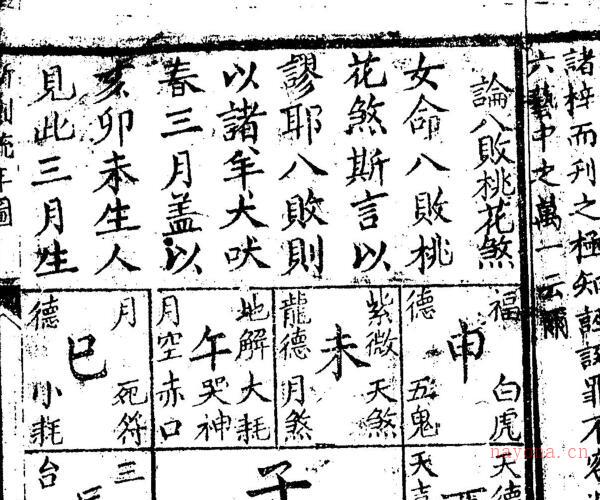 諸梓而刊之極知
六藝中之萬一云爾
論八敗桃花煞
女命八敗桃
花煞斯言以
謬耶八敗則
以諸羊犬吠
春三月盖以
亥卯未生人
見此三月生
流年圖
福德
申
白虎
五鬼
紫微
龍德
未
天煞
月煞
地解
月空
午
大耗
哭神
赤口
月德
巳
死符
小耗
天德
子
三台
nayona.cn